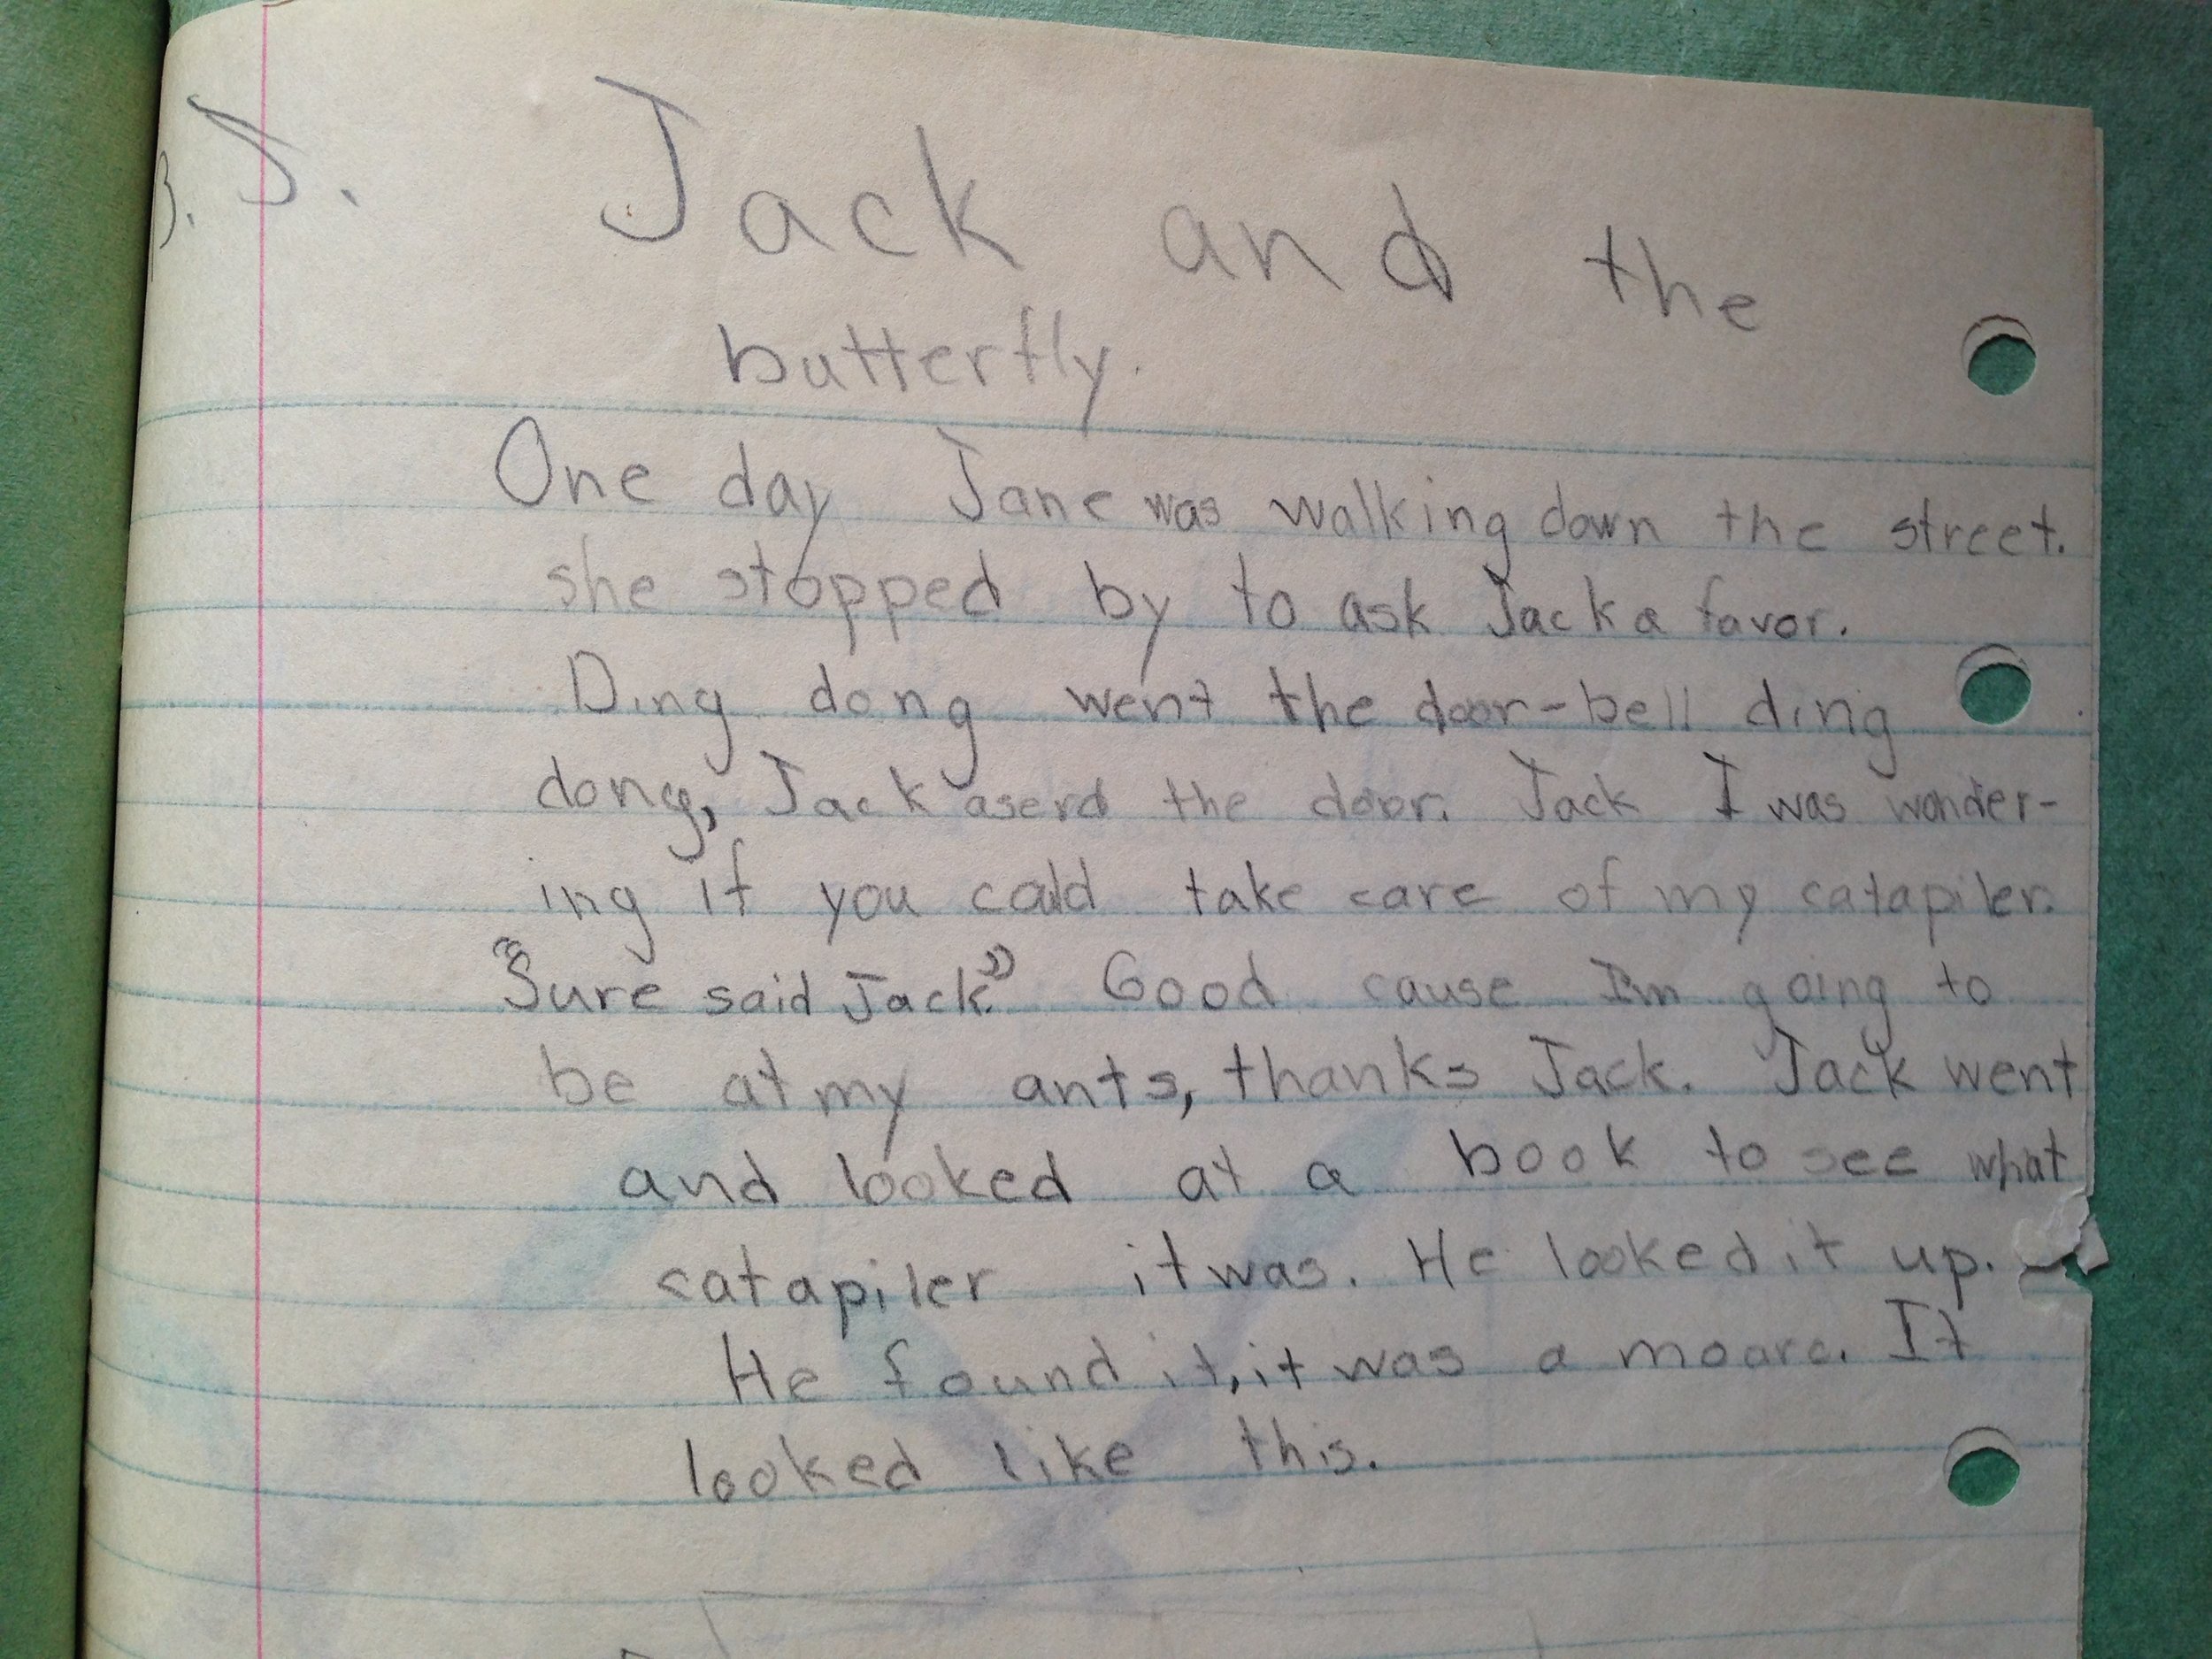 B. J. Jack and the
butterfly.
One day Jane was walking down the street.
she stopped by to ask Jack a favor.
Ding dong went the door-bell ding
dong, Jack aserd the door. Jack I was wonder-
ing if you could take care of my catapiler.
"Sure said Jack." Good cause I'm going to
be at my ants, thanks Jack. Jack went
and looked at a book to see what
catapiler it was. He looked it up.
He found it, it was a moarc. It
looked like this.